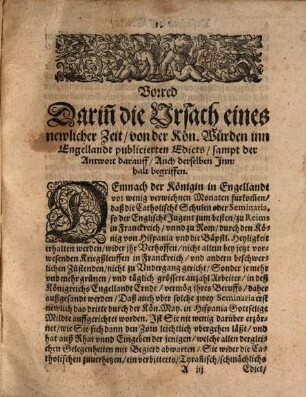 Vorred
Dariñ die Vrsach eines
newlicher Zeit/ von der Kön. Würden inn
Engellandt publicierten Edicts/ sampt der
Antwort darauff/ Auch derselben Jnn-
halt begriffen.
DEmnach der Königin in Engellandt
vor wenig verwichnen Monaten fürkom̃en/
daß die Catholische Schulen oder Seminaria,
so der Englische Jugent zum besten/ zu Reims
in Franckreich/ vnnd zu Rom/ durch den Kö-
nig von Hispania vnd die Bäpstl. Heyligkeit
erhalten werden/ wider jhr Verhoffen/ nicht allein bey jetzt vor-
wesenden Kriegsleuffen in Franckreich/ vnd andern beschwer-
lichen Zůstenden/ nicht zu Vndergang gericht/ Sonder je mehr
vnd mehr grünen/ vnd täglich grössere anzahl Arbeiter/ in deß
Königreichs Engellandt Ernde/ vermög jhres Beruffs/ daher
außgesandt werden/ Daß auch vber solche zwey Seminaria erst
newlich das dritte durch der Kön. May. in Hispania Gottselige
Mildte auffgerichtet worden. Jst Sie nit wenig darüber erzör-
net/ wie Sie sich dann den Zorn leichtlich vbergehen läßt/ vnd
hat auß Rhat vnnd Eingeben der jenigen/ welche allen derglei-
chen Gelegenheiten mit Begierd abwarten/ Sie wider die Ca-
tholischen zuuerhetzen/ ein verbitterts/ Tyrañisch/ schmächlichs
A iij Edict/